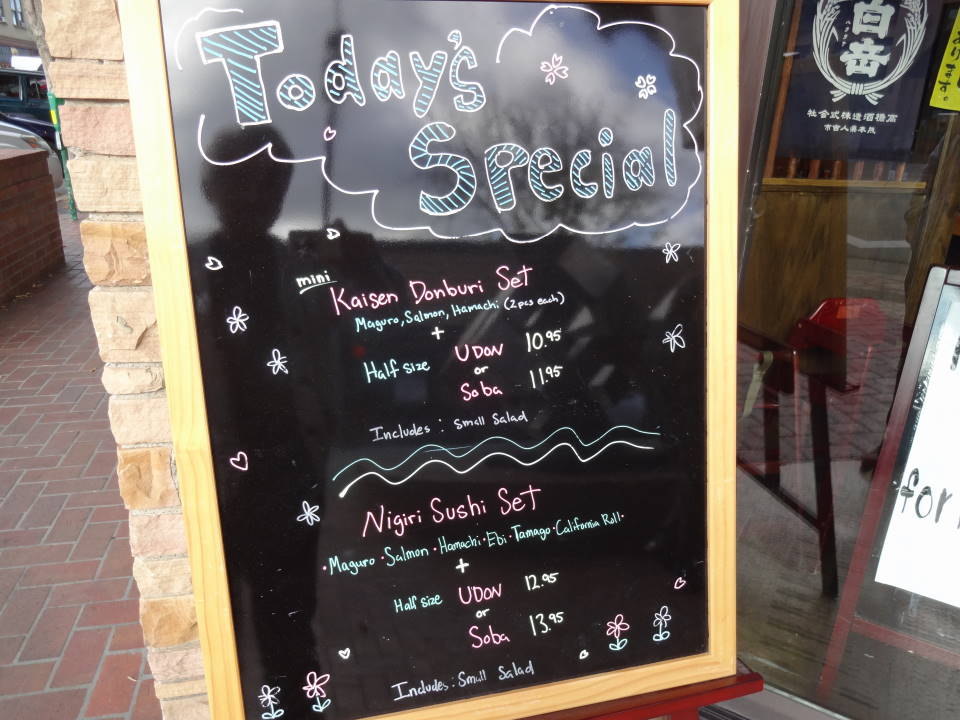 Today's
Special
mini
Kaisen Donburi Set
Maguro, Salmon, Hamachi (2pcs each)
+
Half size UDON 10.95
or
Soba 11.95
Includes: Small Salad
Nigiri Sushi Set
・Maguro・Salmon・Hamachi・Ebi・Tamago・California Roll・
+
Half size UDON 12.95
or
Soba 13.95
Includes: Small Salad
白岳
社会式株造酒橋高
市吉人県本熊
ります。
for